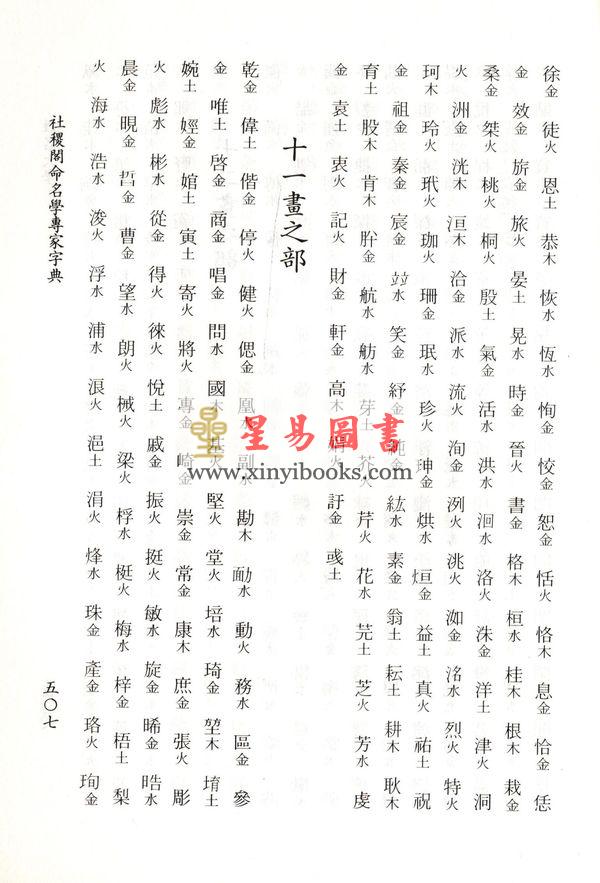 徐金徒火恩土恭木恢水恆水恂金恔金恕金恬火恪木息金恰金恁
金效金旂金旅火晏土晃水時金晉火書金格木桓水桂木根木栽金
桑金桀木桃火桐火殷土氣金活水洪水洄水洛火洙金洋土津火洞
火洲金洸木洹木洽金派水流火洵金洌火洮火洳金洺水烈火特火
珂木玲火玳火珈火珊金珉水珍火珅金烘水烜金益土真火祐土祝
金祖金秦金宸金竝水笑金紓金純金紘水素金翁土耘土耕木耿木
育土股木肯木肸金航水舫水芽土芥火芹火花水芫土芝火芳水虔
金袁土衷火記火財金軒金高木娟火訏金彧土
十一畫之部
乾金偉土偕金停火健火偲金凰水副水勘木勔水動火務水區金參
金唯土啓金商金唱金問水國木基火堅火堂火培水琦金堃木堉土
婉土婭金婠土寅土寄火將火專金崎金崇金常金康木庶金張火彫
火彪水彬水從金得火徠火悅土戚金振火挺火敏水旋金晞金晧水
晨金晛金晢金曹金望水朗火械火梁火桴水梃火梅水梓金梧土梨
火海水浩水浚火浮水浦水浪火浥土涓火烽水珠金產金珞火珣金
社稷閣命名學專家字典
五〇七
星易圖書
www.xinyibooks.com